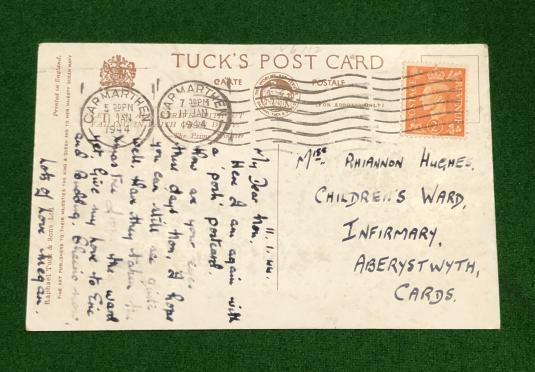 TUCK'S POST CARD
CARTE POSTALE
(FOR ADDRESS ONLY)
Printed in England.
CARMARTHEN
5 30PM
11 JAN
1944
CARMARTHEN
7 30PM
11 JAN
1944
POSTAGE
REVENUE
11.1.44.
My Dear Non,
Here I am again with
a 'posh' postcard.
How are your eyes
these days Non, I hope
you can still see quite
well. Have they taken the
tree down the ward
yet. Give my love to Ene
and Cheerio now,
Lots of love Megan.
Miss RHIANNON HUGHES,
CHILDREN'S WARD,
INFIRMARY,
ABERYSTWYTH,
CARDS.
Raphael Tuck & Sons Ltd.
THE ART PUBLISHERS TO THEIR MAJESTIES THE KING & QUEEN AND TO HER MAJESTY QUEEN MARY